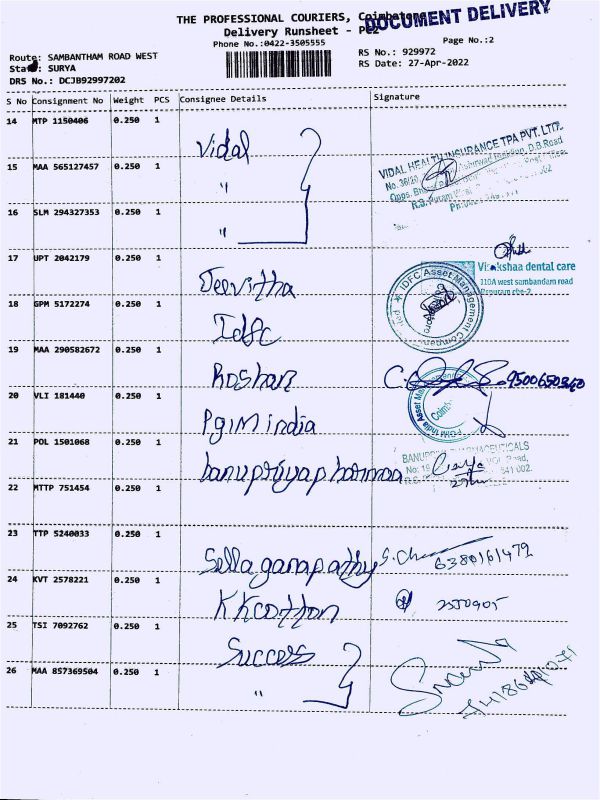 THE PROFESSIONAL COURIERS, Coimbatore
DOCUMENT DELIVERY
Delivery Runsheet -
Phone No.:0422-3505555
Page No.:2
Route: SAMBANTHAM ROAD WEST
RS No.: 929972
Staff: SURYA
RS Date: 27-Apr-2022
DRS No.: DCJB92997202
S No Consignment No Weight PCS Consignee Details Signature
14 MTP 1150406 0.250 1
Vidal
VIDAL HEALTH INSURANCE TPA PVT. LTD.
15 MAA 565127457 0.250 1
"
16 SLM 294327353 0.250 1
"
17 UPT 2042179 0.250 1
Jeevitha
dental care
110A west sambandam road
18 GPM 5172274 0.250 1
Idfc
IDFC Asset Management Company
19 MAA 290582672 0.250 1
Roshan
20 VLI 181440 0.250 1
PgiM india
PGIM India Asset
21 POL 1501068 0.250 1
banupriya pharmaa
641 002.
22 MTTP 751454 0.250 1
23 TTP 5240033 0.250 1
Sella ganapathy
6380161479
24 KVT 2578221 0.250 1
KKcotton
25 TSI 7092762 0.250 1
Success
26 MAA 857369504 0.250 1
"